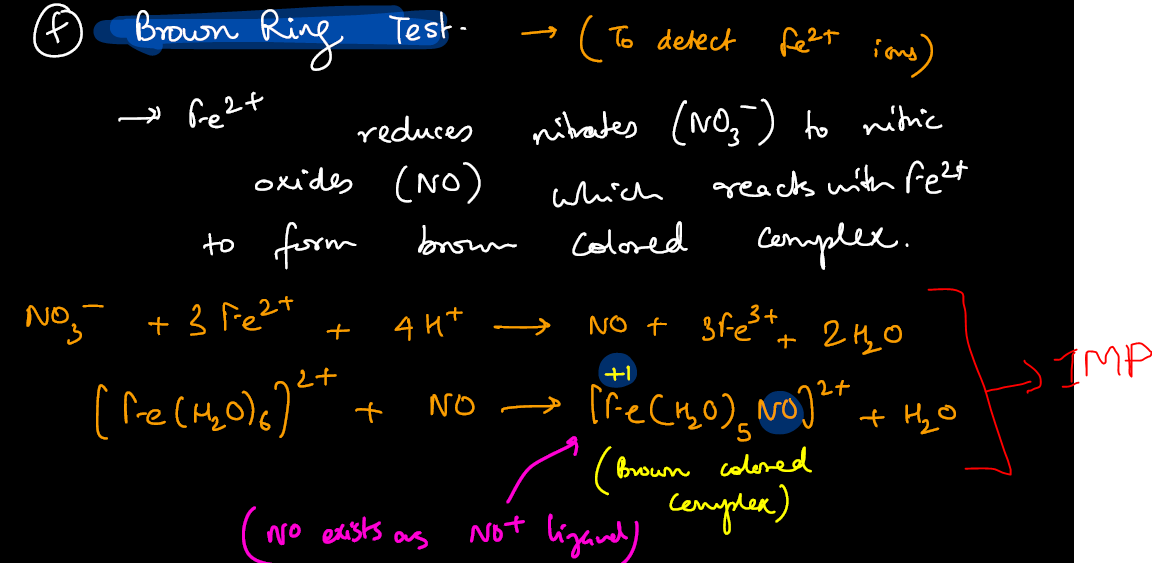 (f) Brown Ring Test. → (To detect Fe²⁺ ions)
→ Fe²⁺ reduces nitrates (NO₃⁻) to nitric
oxides (NO) which reacts with Fe²⁺
to form brown colored complex.
NO₃⁻ + 3Fe²⁺ + 4H⁺ → NO + 3Fe³⁺ + 2H₂O
→ IMP
+1
[Fe(H₂O)₆]²⁺ + NO → [Fe(H₂O)₅NO]²⁺ + H₂O
(Brown colored
complex)
(NO exists as NO⁺ ligand)